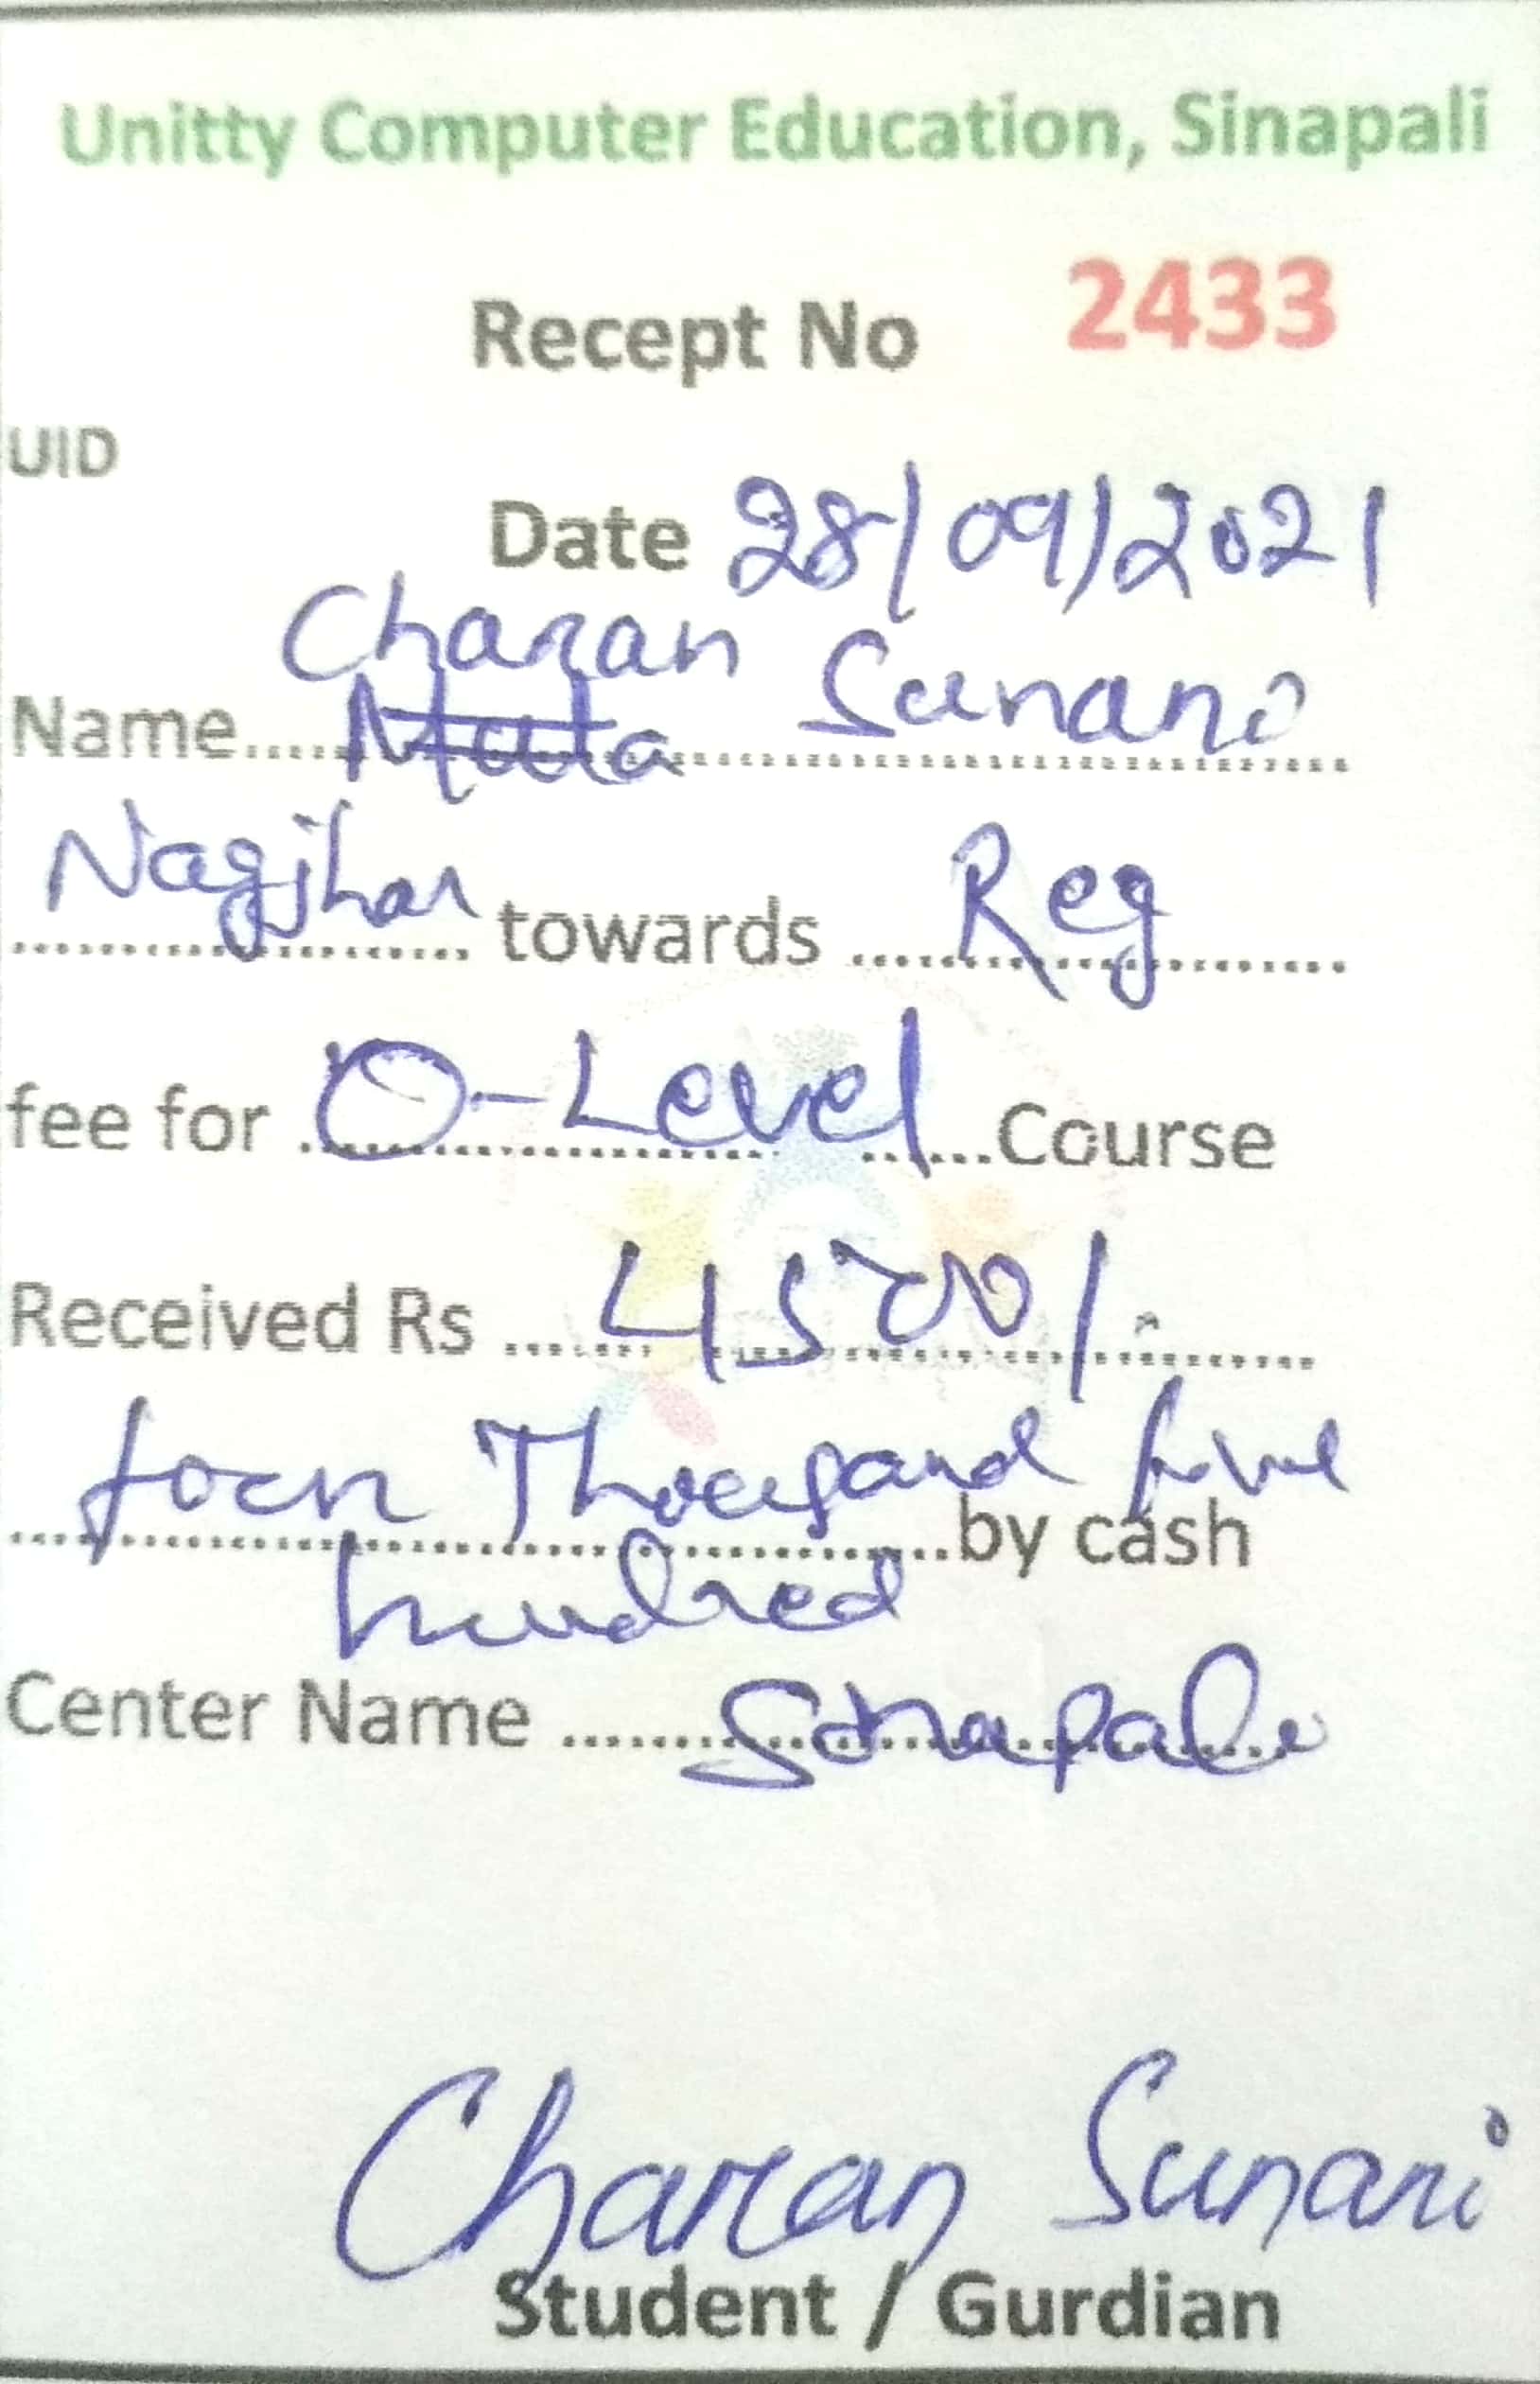 Unitty Computer Education, Sinapali
Recept No 2433
UID
Date 28/09/2021
Charan Sunani
Name....................
Nagjhar towards Reg
fee for O-Level Course
Received Rs 4500/-
four Thousand five
by cash
hundred
Center Name Sinapali
Charan Sunani
Student / Gurdian